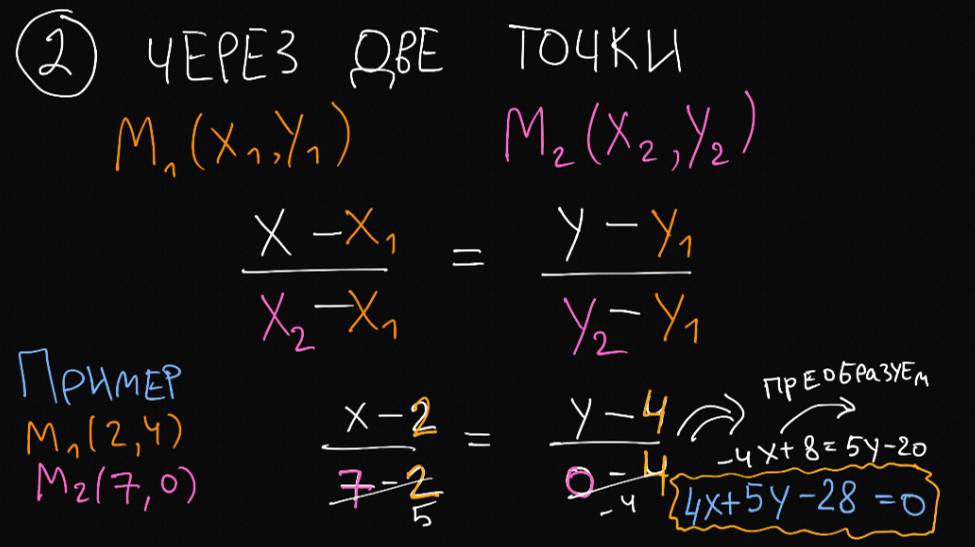 2 ЧЕРЕЗ ДВЕ ТОЧКИ
M₁(X₁,Y₁) M₂(X₂,Y₂)
X-X₁ / X₂-X₁ = Y-Y₁ / Y₂-Y₁
ПРИМЕР
M₁(2,4)
M₂(7,0)
X-2 / 7-2 = Y-4 / 0-4
5 -4
ПРЕОБРАЗУЕМ
-4X+8=5Y-20
4X+5Y-28=0